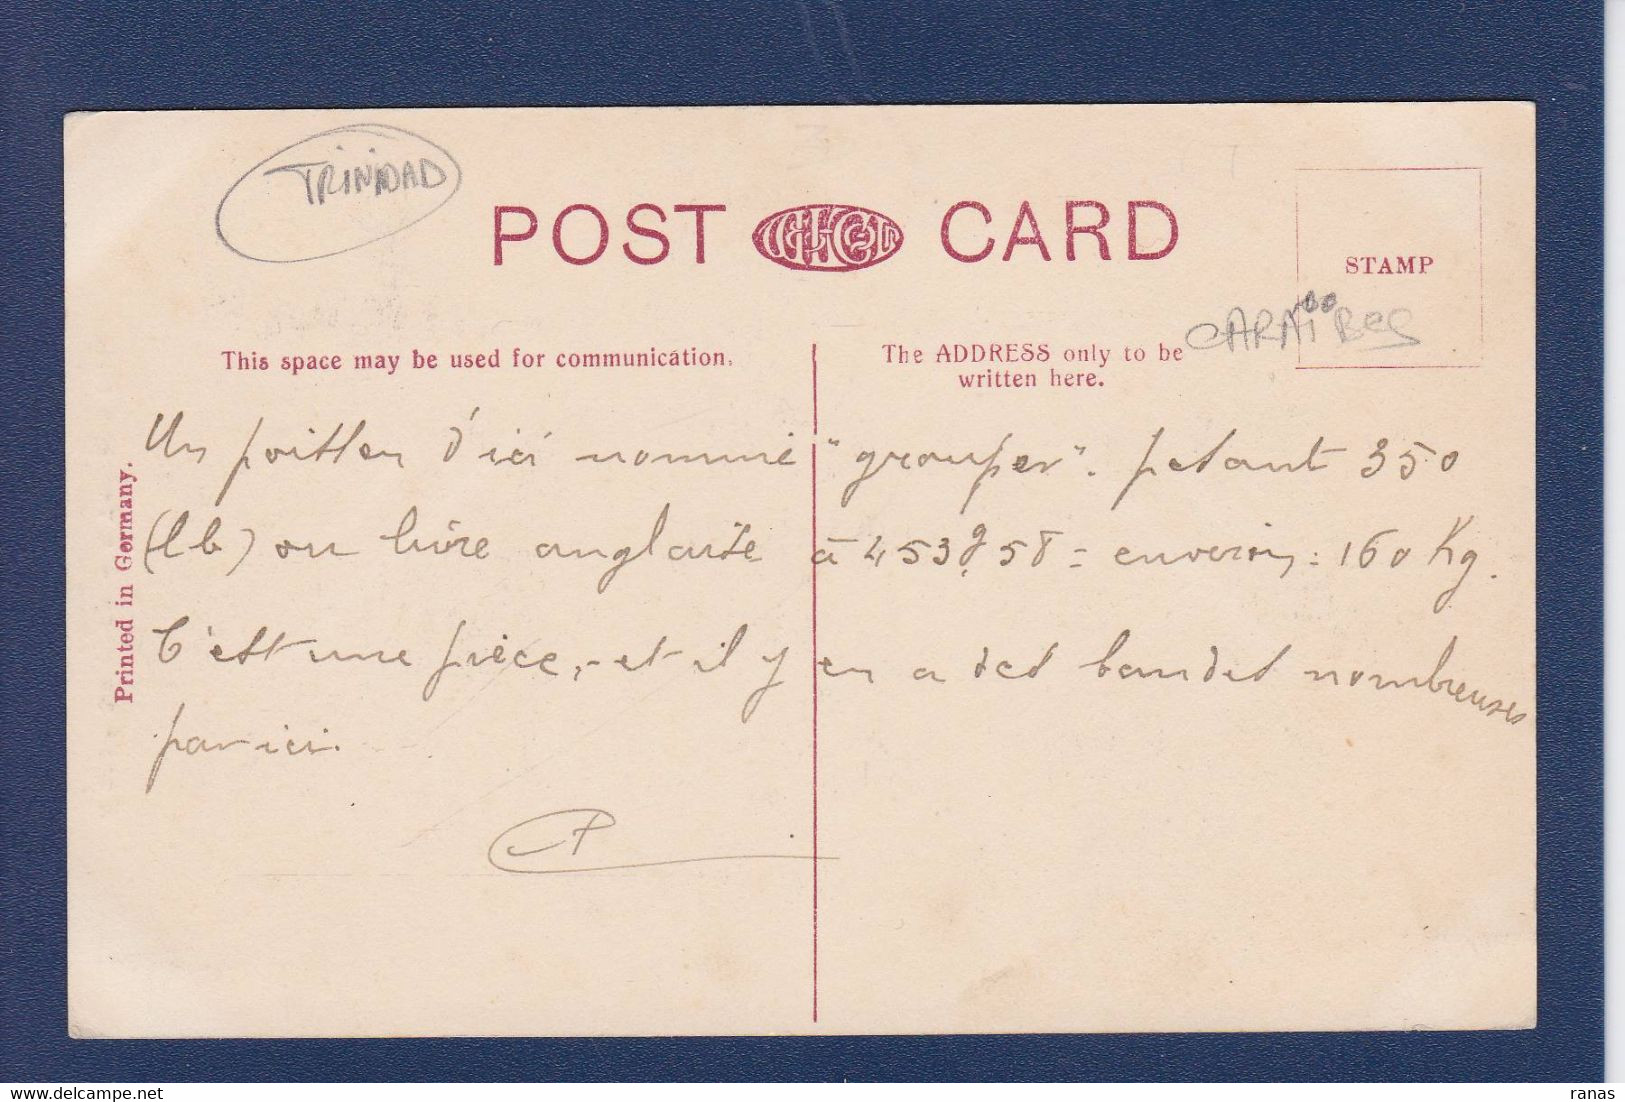 TRINIDAD
POST CARD
STAMP
CARAIBES
This space may be used for communication.
The ADDRESS only to be
written here.
Printed in Germany.
Un poisson d'ici nommé "grouper". pesant 350
(lb) ou livre anglaise à 453g,58 = environ : 160 Kg.
C'est une pièce,- et il y en a des bandes nombreuses
par ici.
delcampe.net
ranas